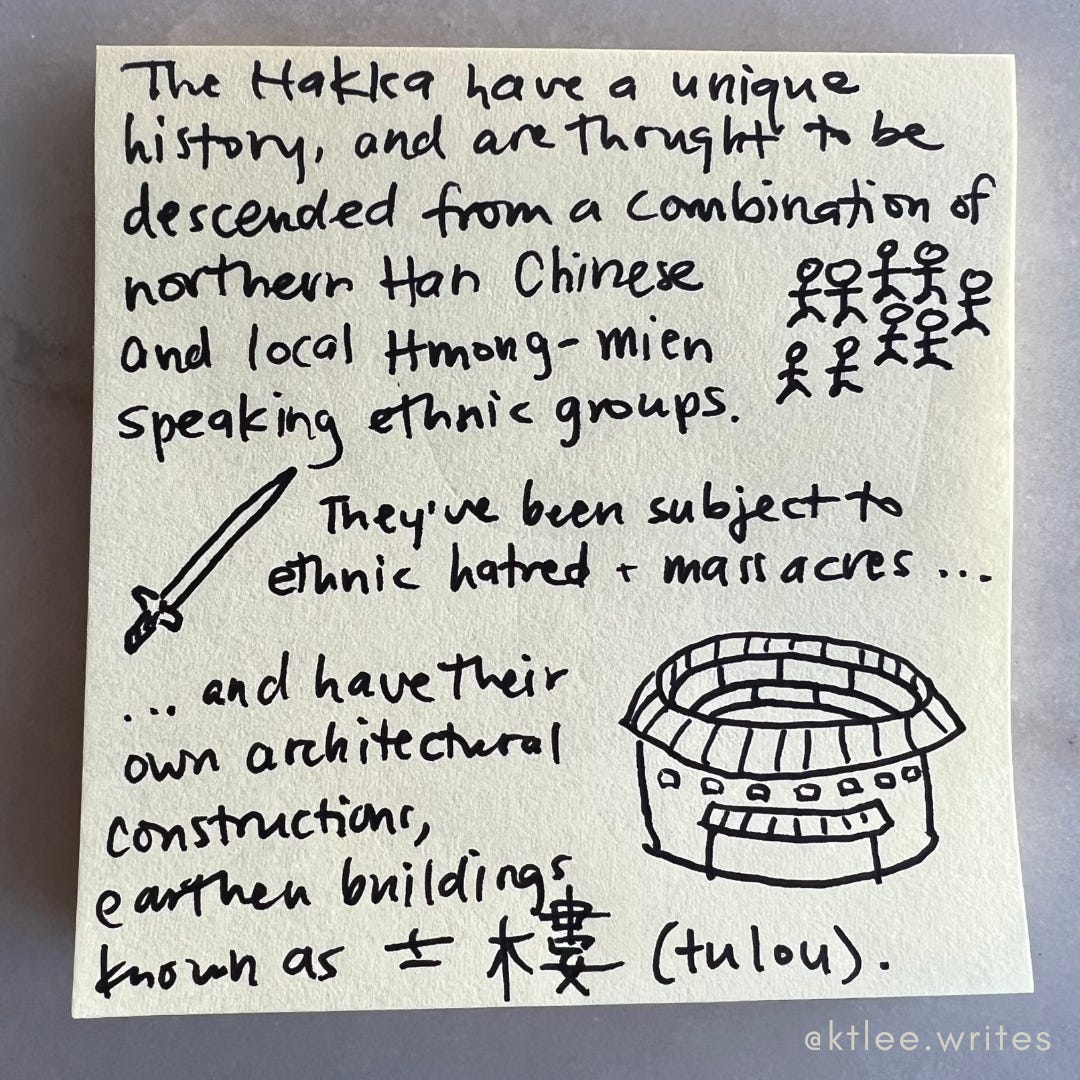 The Hakka have a unique
history, and are thought to be
descended from a combination of
northern Han Chinese
and local Hmong-mien
speaking ethnic groups.
They've been subject to
ethnic hatred + massacres ...
... and have their
own architectural
constructions,
earthen buildings
known as 土樓 (tulou).
@ktlee.writes